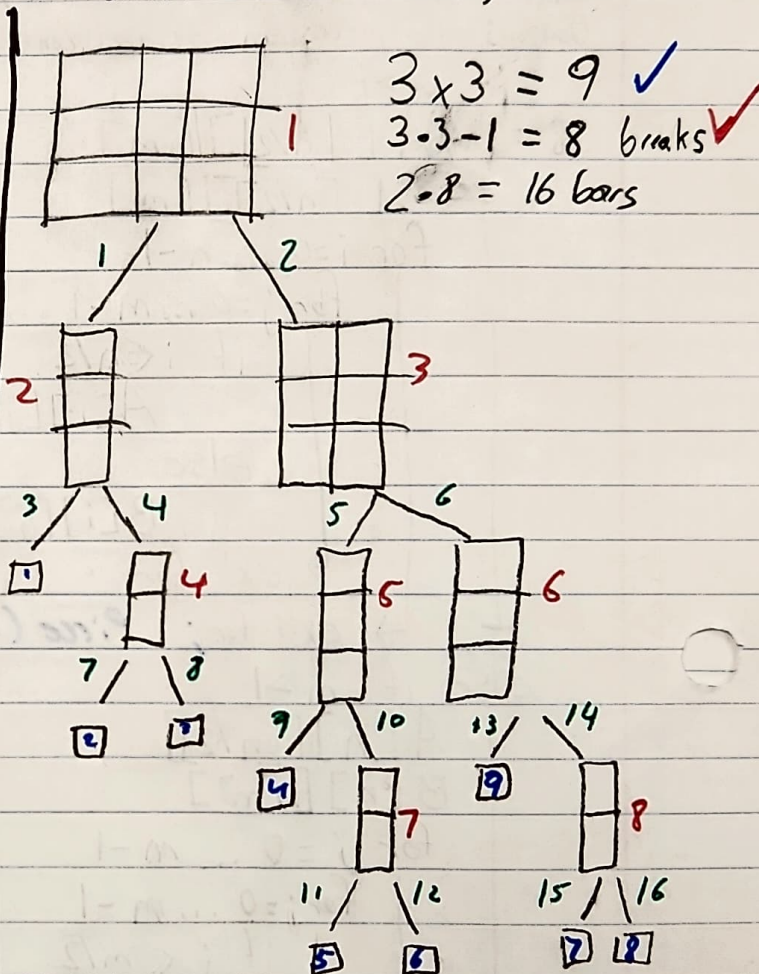 3 x 3 = 9 ✓
1
3·3-1 = 8 breaks ✓
2·8 = 16 bars
1 2
2 3
3 4 5 6
1 4 5 6
7 8
2 3 9 10 13 14
4 9
7 8
11 12 15 16
5 6 7 8